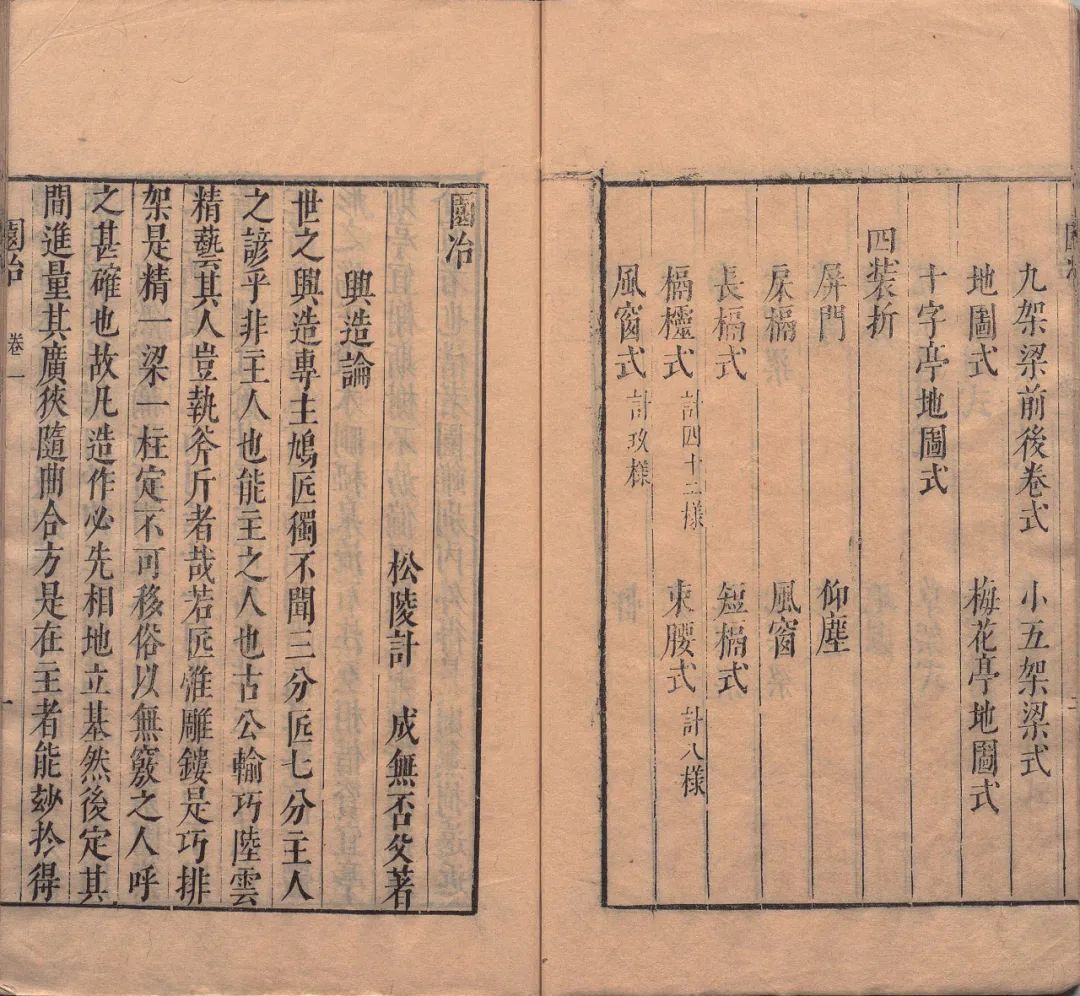 九架梁前後卷式 小五架梁式
地圖式 梅花亭地圖式
十字亭地圖式
四裝折
屏門 仰塵
床槅 風窗
長槅式 短槅式
槅櫺式 計四十三樣 束腰式 計八樣
風窗式 計玖樣
園冶
松陵計 成無否父著
興造論
世之興造專主鳩匠獨不聞三分匠七分主人
之諺乎非主人也能主之人也古公輸巧陸雲
精藝其人豈執斧斤者哉若匠惟雕鏤是巧排
架是精一梁一柱定不可移俗以無竅之人呼
之甚確也故凡造作必先相地立基然後定其
間進量其廣狹隨曲合方是在主者能妙於得
園冶 卷一 一